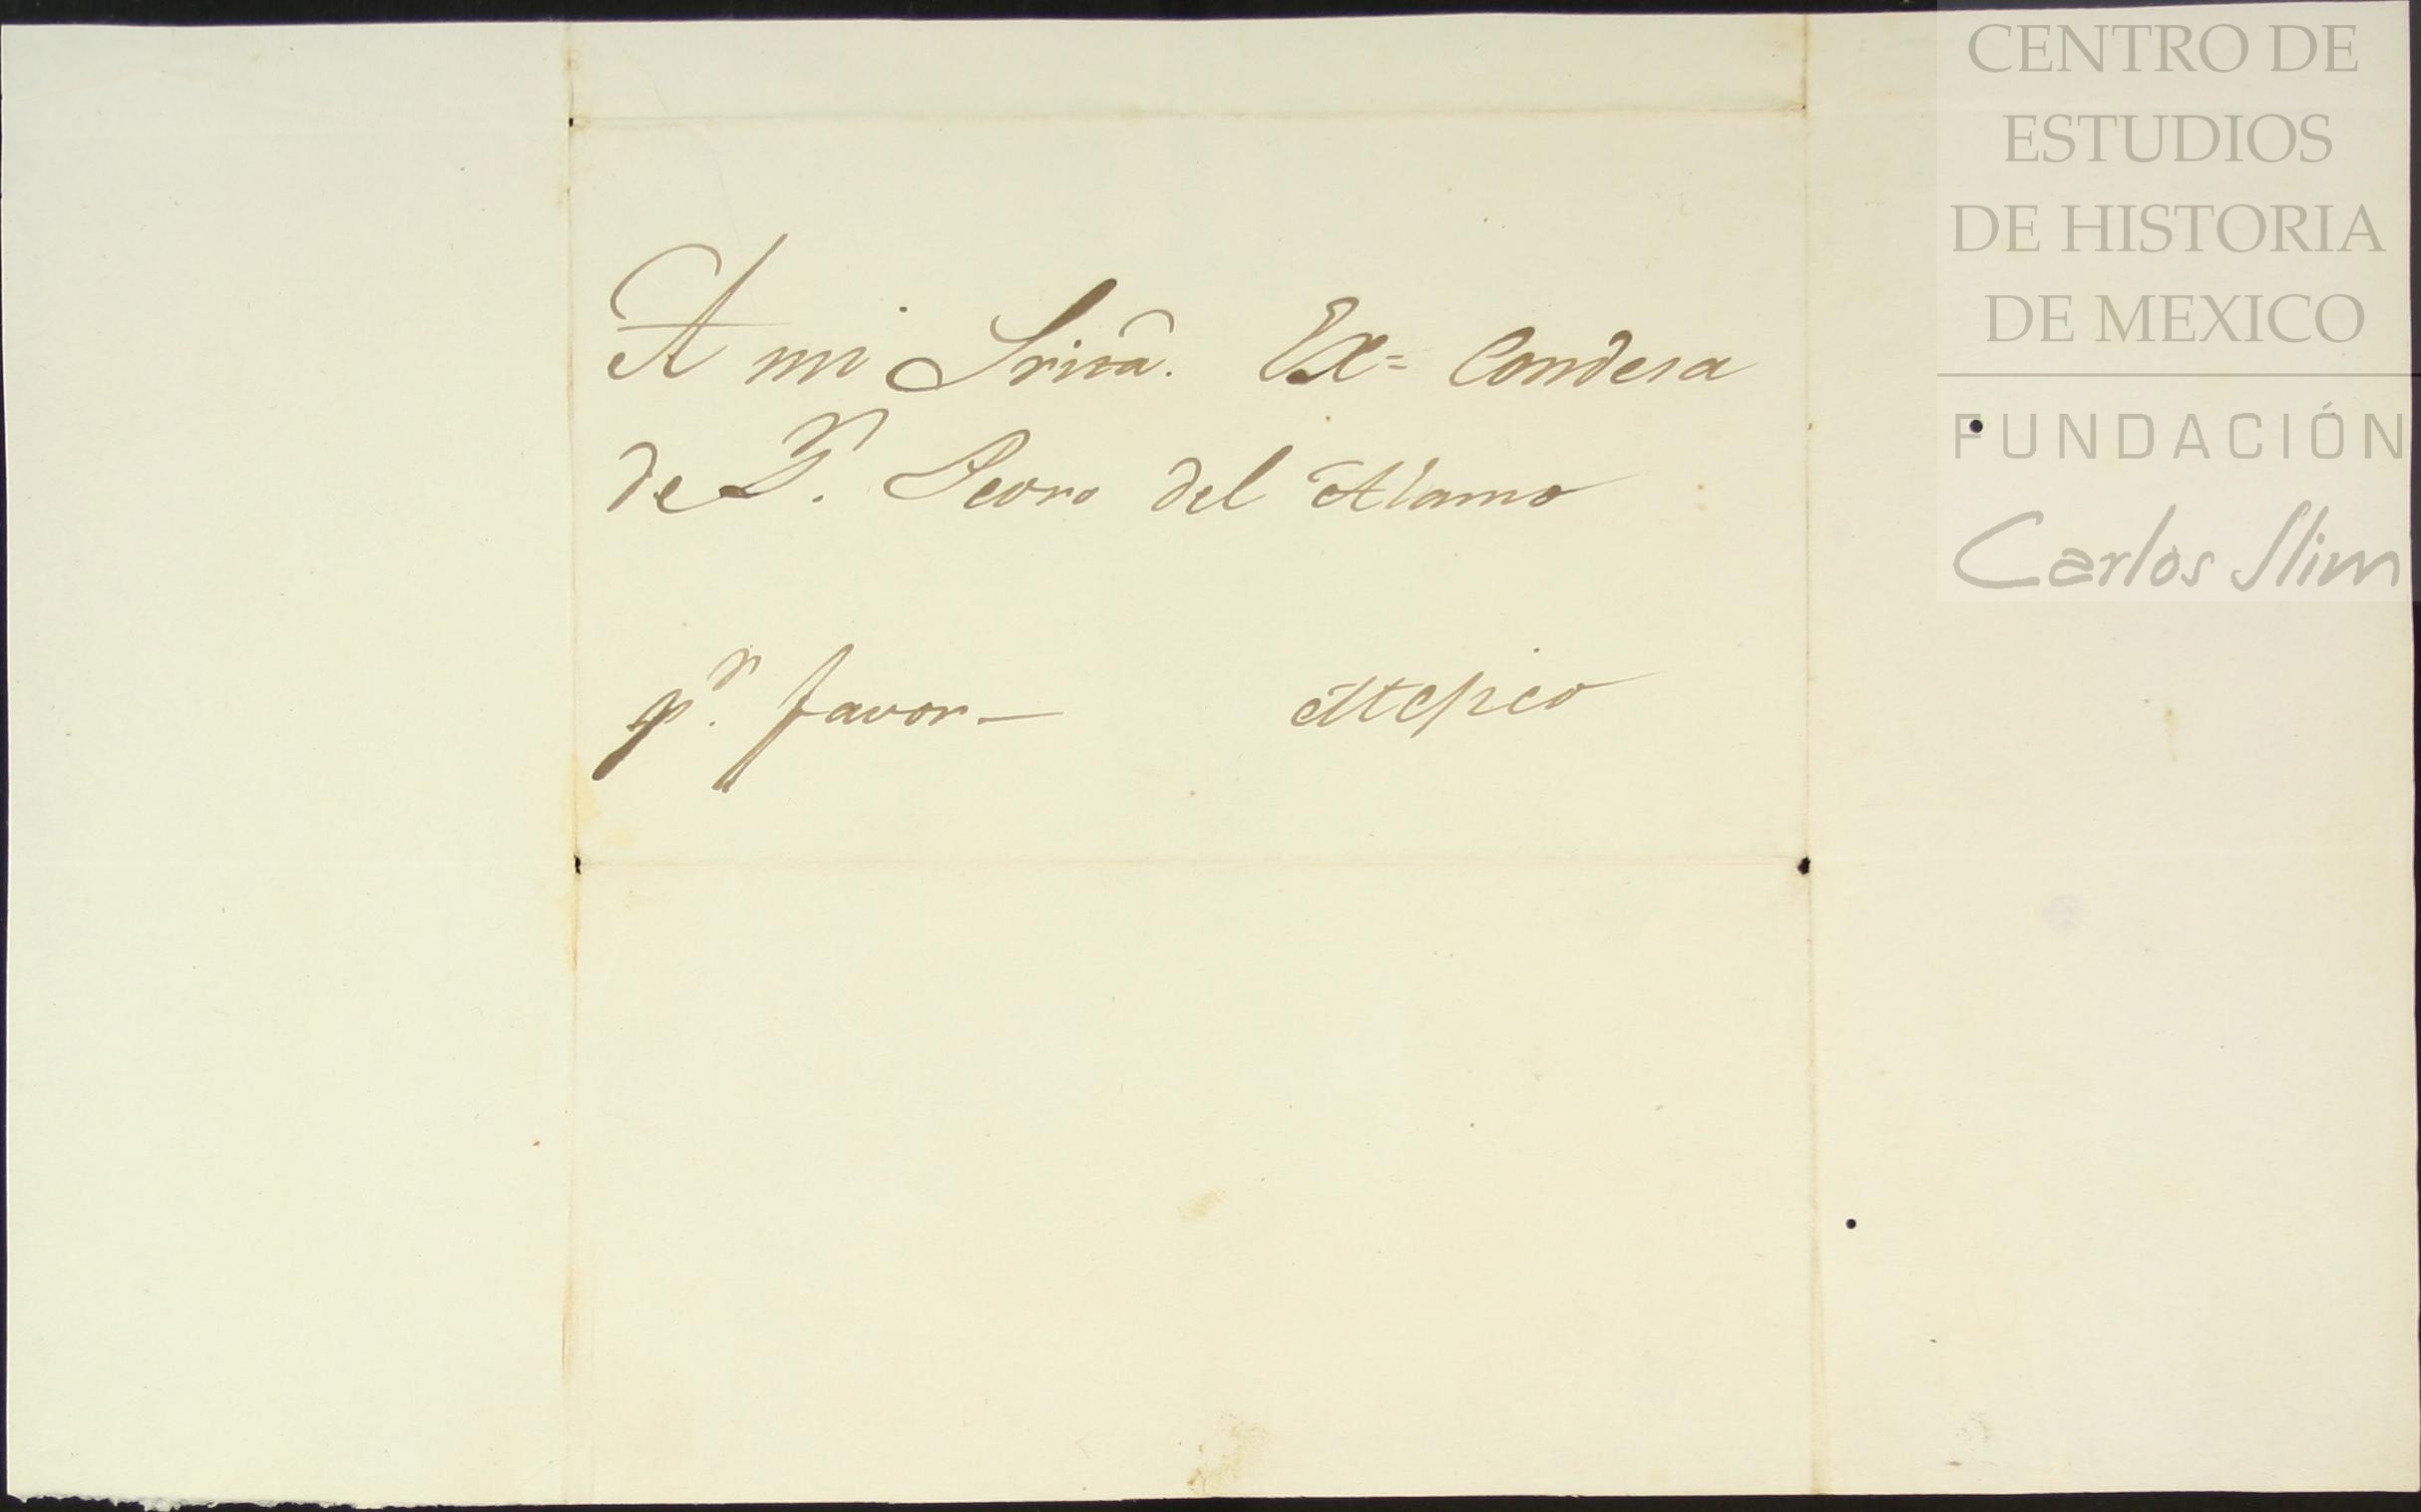 A mi Srita. Ex= Condesa
de Sn. Pedro del Alamo
pr. favor—
CENTRO DE
ESTUDIOS
DE HISTORIA
DE MEXICO
FUNDACIÓN
Carlos Slim